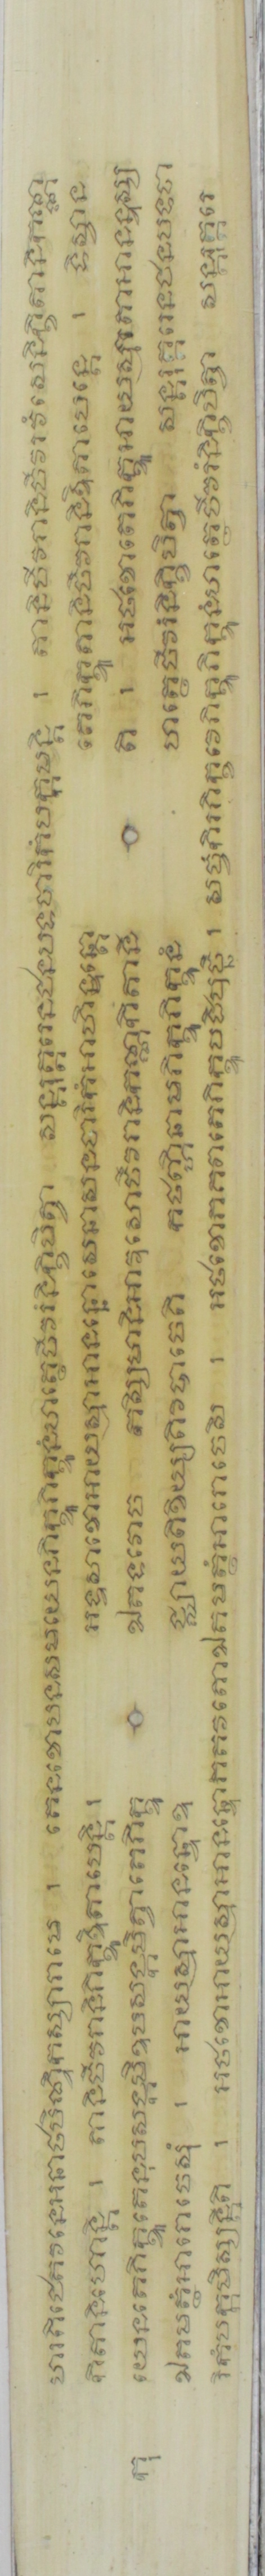 ហរតិជេតវនេអនាថបិណ្ឌិកស្សារាមេ ។ តេនខោបនសមយេនភិក្ខូភិក្ខូនំហត្ថេចីវរំនិក្ខិបិត្វា សន្តរុត្តរេនជនបទចារិកំបក្កមន្តិ ។ តានិចីវរានិចីវរវំសេនិក្ខិតានិកណ្ណ
កិតានិហោន្តិ ។ តានិចីវរានិភិក្ខូឱតាបេន្តិ ។ អទ្ទសាខោអាយស្មាអានន្ទោសេនាសនចារិកំអាហិឌន្តោ តេភិក្ខូតានិចីវរានិឱតាបេន្តេ ។ ទិស្វាន
កុ យេនតេភិក្ខូតេនុបសង្កមិឧបសង្កមិត្វាតេភិក្ខូ ឯតទវោច កស្សិមានិអាវុសោចីវរានិកណ្ណកិតានី តិ ។ អថខោតេភិក្ខូអាយស្មតោអានន្ទស្ស
ឯតមត្ថំអារោចេសុំ ។ អាយស្មាអានន្ទោឧ ជ្ឈាយតិខិយ្យតិវិបាចេតិ កថញ្ហិនាមភិក្ខូភិក្ខូនំ ហត្ថេចីវរំនិក្ខិបិត្វា សន្តរុត្តរេនជនបទចា
រិកំបក្កមិស្សន្តីតិ ។ អថខោអាយស្មាអានន្ទោភគវតោឯតមត្ថំអារោចេសិ ។ អថខោភគវាតេភិក្ខូបដិបុច្ឆិ ។ សច្ចំកិរភិក្ខវេភិក្ខូភិក្ខូនំហត្ថេចីវរំនិក្ខិបិត្វា សន្តរុត្តរេ